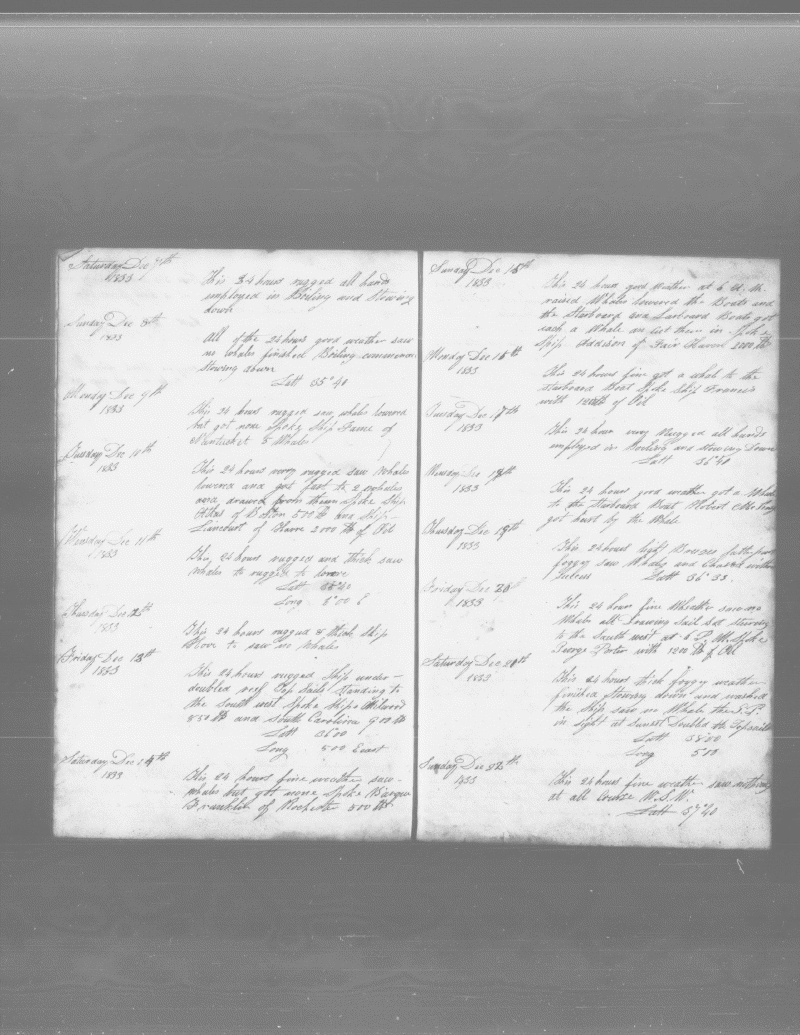 Saturday Dec 7th
1833
This 24 hours rugged all hands
employed in Boiling and Stowing
down
Sunday Dec 8th
1833
All of the 24 hours good weather saw
no whales finished Boiling commenced
stowing down
Latt 35°40
Monday Dec 9th
1833
This 24 hours rugged saw whales lowered
but got none Spoke Ship Fame of
Nantucket 8 Whales
Tuesday Dec 10th
1833
This 24 hours very rugged saw whales
lowered and got fast to 2 whales
and drawed from them Spoke Ship
of Boston 500 lb and Ship
Liancourt of Havre 2000 lb of Oil
Wensday Dec 11th
1833
This 24 hours rugged and thick saw
whales to rugged to lower
Latt
Long
Thursday Dec 12th
1833
This 24 hours rugged & thick Ship
Hove to saw no whales
Friday Dec 13th
1833
This 24 hours rugged Ship under
doubled reef Top Sails Standing to
the South west Spoke Ships
850 lb and South Carolina 900 lb
Latt 36 00
Long 5 00 East
Saturday Dec 14th
1833
This 24 hours fine weather saw
whales but got none Spoke Barque
Franklin of 500 lb
Sunday Dec 15th
1833
This 24 hours good weather at 6 A. M.
raised Whales lowered the Boats and
the Starboard and Larboard Boats got
each a Whale Spoke
Ship Addison of Fair Haven
Monday Dec 16th
1833
This 24 hours fine got a whale to the
starboard Boat Spoke Ship Francis
with of Oil
Tuesday Dec 17th
1833
This 24 hours very Rugged all hands
employed in Boiling and Stowing Down
Latt 36°40
Dec 18th
1833
This 24 hours good weather got a Whale
to the Starboard Boat Robert
got hurt by the Whale
Thursday Dec 19th
1833
This 24 hours light Breezes
foggy saw Whales and Chased without
Sucess Latt 36°33
Friday Dec 20th
1833
This 24 hours fine Weather saw no
Whale all Drawing Sail Set steering
to the South west at 6 P. M. Spoke
George Porter with 1200 lb of Oil
Saturday Dec 21th
1833
This 24 hours thick foggy weather
finished stowing down and washed
the Ship saw no Whale
in sight at Sunset Doubled the Topsails
Latt 38 00
Long
Sunday Dec 22th
1833
This 24 hours fine weather saw nothing
at all Course W. S. W.
Latt 37°40